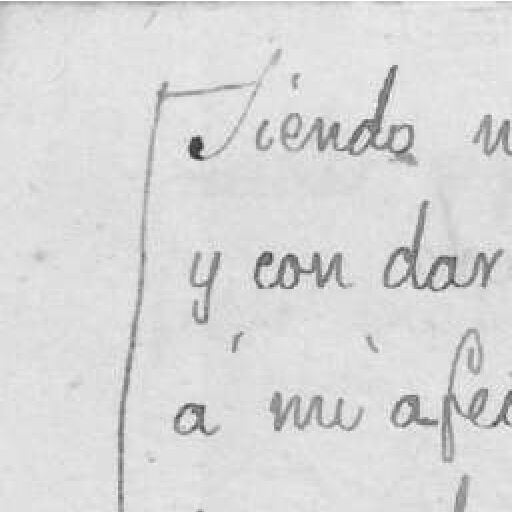 Siendo
y con dar
á mi afec